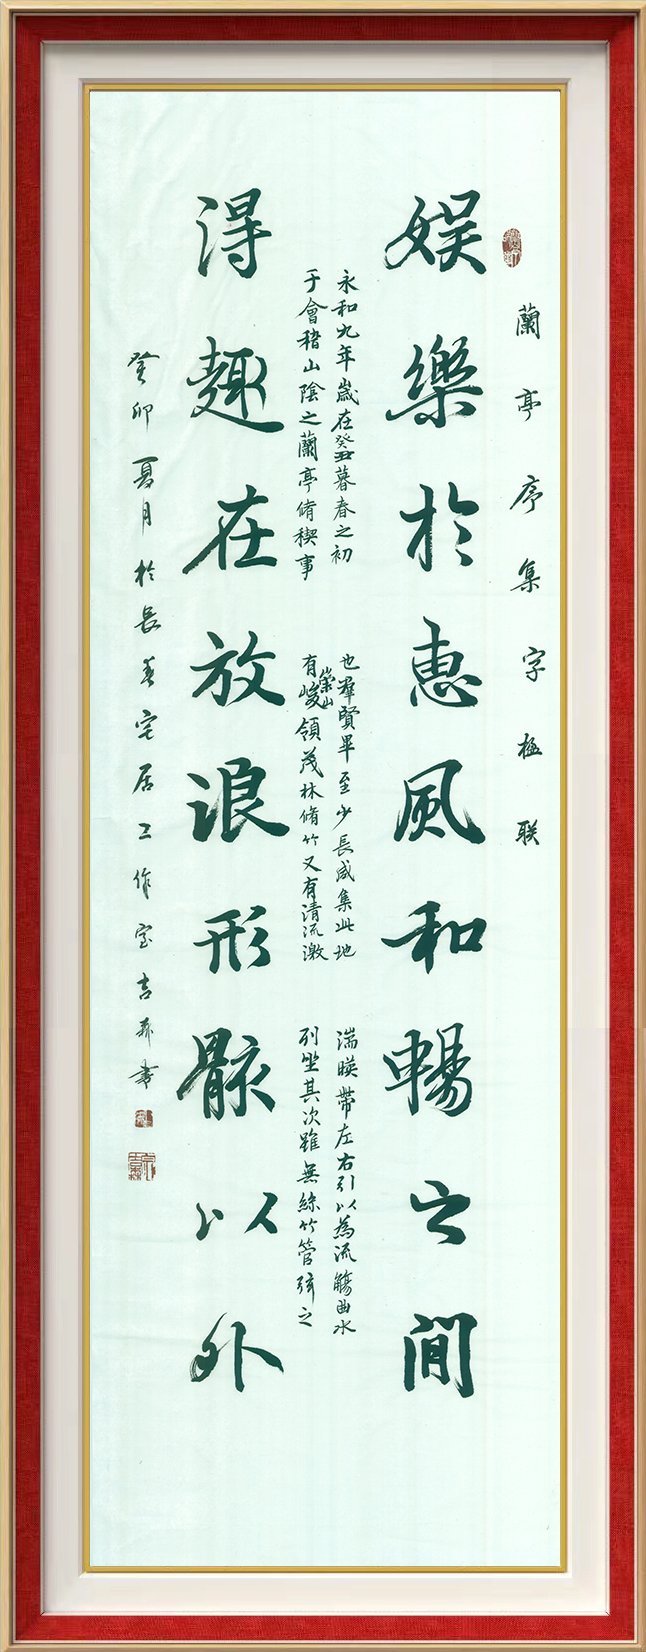 蘭亭序集字楹联
娱樂於惠風和暢之間
永和九年歲在癸丑暮春之初
于會稽山陰之蘭亭脩稧事
也羣賢畢至少長咸集此地
有崇山峻領茂林脩竹又有清流激
湍暎帶左右引以為流觴曲水
列坐其次雖無絲竹管弦之
得趣在放浪形骸以外
癸卯夏月於長春宅居工作室吉森書